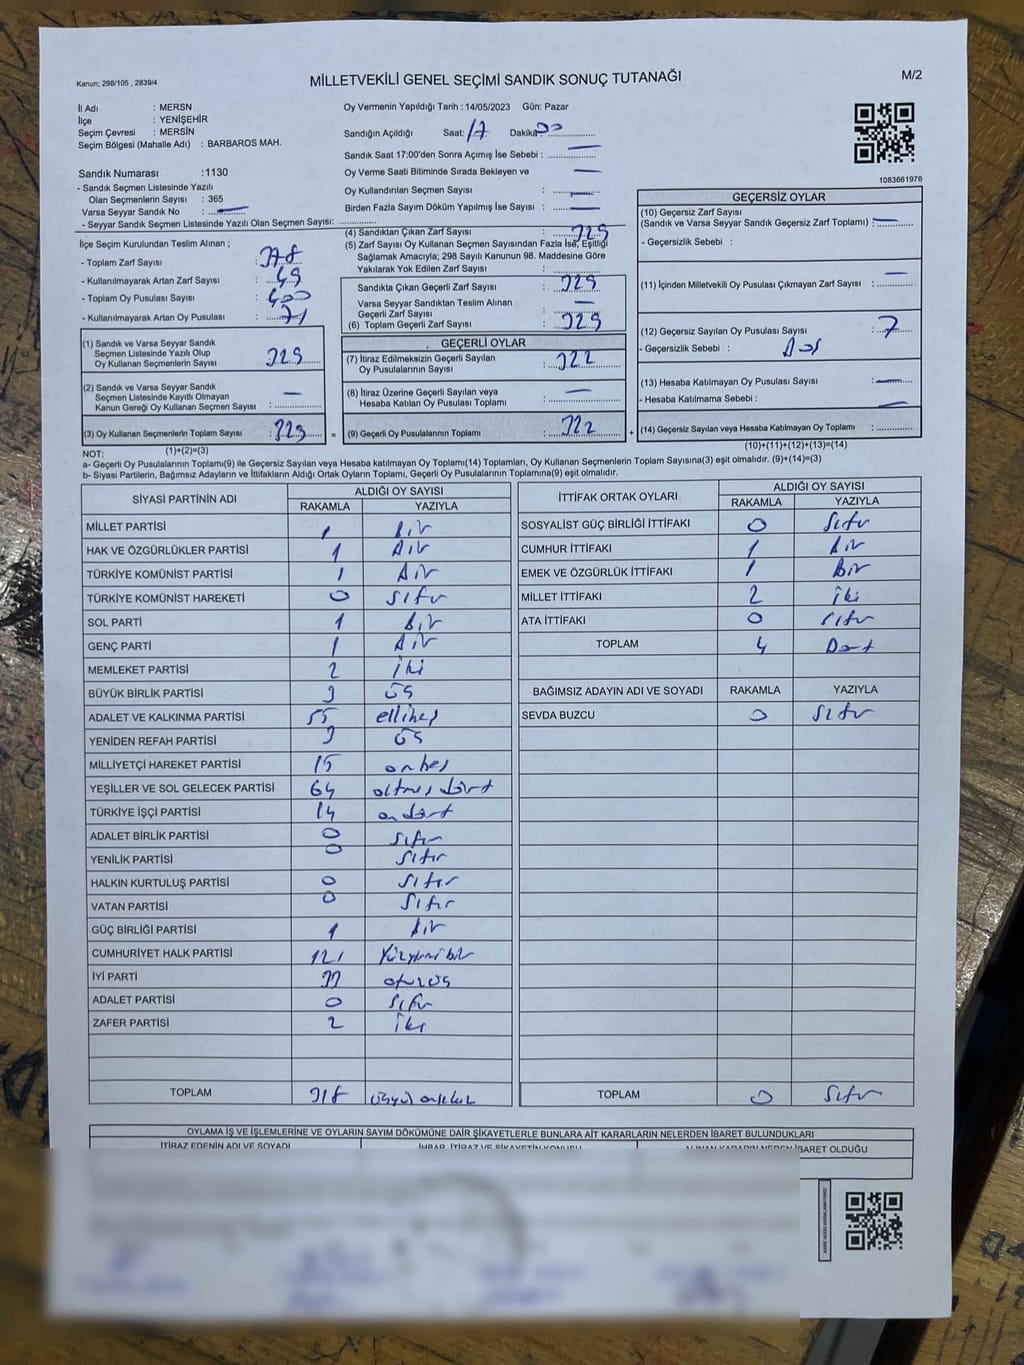 Kanun; 298/105 , 2839/4
MİLLETVEKİLİ GENEL SEÇİMİ SANDIK SONUÇ TUTANAĞI
M/2
İl Adı : MERSN
İlçe : YENİŞEHİR
Seçim Çevresi : MERSİN
Seçim Bölgesi (Mahalle Adı) : BARBAROS MAH.
Sandık Numarası :1130
- Sandık Seçmen Listesinde Yazılı
Olan Seçmenlerin Sayısı : 365
Varsa Seyyar Sandık No : —
- Seyyar Sandık Seçmen Listesinde Yazılı Olan Seçmen Sayısı: ................
Oy Vermenin Yapıldığı Tarih : 14/05/2023 Gün: Pazar
Sandığın Açıldığı Saat: 17 Dakika: 00
Sandık Saat 17:00'den Sonra Açımış İse Sebebi : —
Oy Verme Saati Bitiminde Sırada Bekleyen ve —
Oy Kullandırılan Seçmen Sayısı : —
Birden Fazla Sayım Döküm Yapılmış İse Sayısı : —
1083661976
İlçe Seçim Kurulundan Teslim Alınan ;
- Toplam Zarf Sayısı : 378
- Kullanılmayarak Artan Zarf Sayısı : 49
- Toplam Oy Pusulası Sayısı : 400
- Kullanılmayarak Artan Oy Pusulası : 71
(1) Sandık ve Varsa Seyyar Sandık
Seçmen Listesinde Yazılı Olup
Oy Kullanan Seçmenlerin Sayısı : 329
(2) Sandık ve Varsa Seyyar Sandık
Seçmen Listesinde Kayıtlı Olmayan
Kanun Gereği Oy Kullanan Seçmen Sayısı : —
(3) Oy Kullanan Seçmenlerin Toplam Sayısı : 329 =
(1)+(2)=(3)
(4) Sandıktan Çıkan Zarf Sayısı : 329
(5) Zarf Sayısı Oy Kullanan Seçmen Sayısından Fazla İse, Eşitliği
Sağlamak Amacıyla; 298 Sayılı Kanunun 98. Maddesine Göre
Yakılarak Yok Edilen Zarf Sayısı : ................
Sandıkta Çıkan Geçerli Zarf Sayısı : 329
Varsa Seyyar Sandıktan Teslim Alınan
Geçerli Zarf Sayısı : —
(6) Toplam Geçerli Zarf Sayısı : 329
GEÇERLİ OYLAR
(7) İtiraz Edilmeksizin Geçerli Sayılan
Oy Pusulasının Sayısı : 322
(8) İtiraz Üzerine Geçerli Sayılan veya
Hesaba Katılan Oy Pusulası Toplamı : —
(9) Geçerli Oy Pusulalarının Toplamı : 322 +
GEÇERSİZ OYLAR
(10) Geçersiz Zarf Sayısı
(Sandık ve Varsa Seyyar Sandık Geçersiz Zarf Toplamı) : —
- Geçersizlik Sebebi :
(11) İçinden Milletvekili Oy Pusulası Çıkmayan Zarf Sayısı : —
(12) Geçersiz Sayılan Oy Pusulası Sayısı : 7
- Geçersizlik Sebebi :
(13) Hesaba Katılmayan Oy Pusulası Sayısı : —
- Hesaba Katılmama Sebebi : —
(14) Geçersiz Sayılan veya Hesaba Katılmayan Oy Toplamı : ................
(10)+(11)+(12)+(13)=(14)
NOT:
a- Geçerli Oy Pusulalarının Toplamı(9) ile Geçersiz Sayılan veya Hesaba Katılmayan Oy Toplamı(14) Toplamları, Oy Kullanan Seçmenlerin Toplam Sayısına(3) eşit olmalıdır. (9)+(14)=(3)
b- Siyasi Partilerin, Bağımsız Adayların ve İttifakların Aldığı Ortak Oyların Toplamı, Geçerli Oy Pusulalarının Toplamına(9) eşit olmalıdır.
SİYASİ PARTİNİN ADI ALDIĞI OY SAYISI
RAKAMLA YAZIYLA
MİLLET PARTİSİ 1 Bir
HAK VE ÖZGÜRLÜKLER PARTİSİ 1 Bir
TÜRKİYE KOMÜNİST PARTİSİ 1 Bir
TÜRKİYE KOMÜNİST HAREKETİ 0 Sıfır
SOL PARTİ 1 Bir
GENÇ PARTİ 1 Bir
MEMLEKET PARTİSİ 2 iki
BÜYÜK BİRLİK PARTİSİ 3 üç
ADALET VE KALKINMA PARTİSİ 55 ellibeş
YENİDEN REFAH PARTİSİ 3 üç
MİLLİYETÇİ HAREKET PARTİSİ 15 onbeş
YEŞİLLER VE SOL GELECEK PARTİSİ 64 altmış dört
TÜRKİYE İŞÇİ PARTİSİ 14 on dört
ADALET BİRLİK PARTİSİ 0 Sıfır
YENİLİK PARTİSİ 0 Sıfır
HALKIN KURTULUŞ PARTİSİ 0 Sıfır
VATAN PARTİSİ 0 Sıfır
GÜÇ BİRLİĞİ PARTİSİ 1 Bir
CUMHURİYET HALK PARTİSİ 121 Yüzyirmibir
İYİ PARTİ 33 otuzüç
ADALET PARTİSİ 0 Sıfır
ZAFER PARTİSİ 2 iki
TOPLAM 318 üçyüz onsekiz
İTTİFAK ORTAK OYLARI ALDIĞI OY SAYISI
RAKAMLA YAZIYLA
SOSYALİST GÜÇ BİRLİĞİ İTTİFAKI 0 Sıfır
CUMHUR İTTİFAKI 1 Bir
EMEK VE ÖZGÜRLÜK İTTİFAKI 1 Bir
MİLLET İTTİFAKI 2 iki
ATA İTTİFAKI 0 Sıfır
TOPLAM 4 Dört
BAĞIMSIZ ADAYIN ADI VE SOYADI RAKAMLA YAZIYLA
SEVDA BUZCU 0 Sıfır
TOPLAM 0 Sıfır
OYLAMA İŞ VE İŞLEMLERİNE VE OYLARIN SAYIM DÖKÜMÜNE DAİR ŞİKAYETLERLE BUNLARA AİT KARARLARIN NELERDEN İBARET BULUNDUKLARI
İTİRAZ EDENİN ADI VE SOYADI İHBAR, İTİRAZ VE ŞİKAYETİN KONUSU ALINAN KARARIN NEDEN İBARET OLDUĞU